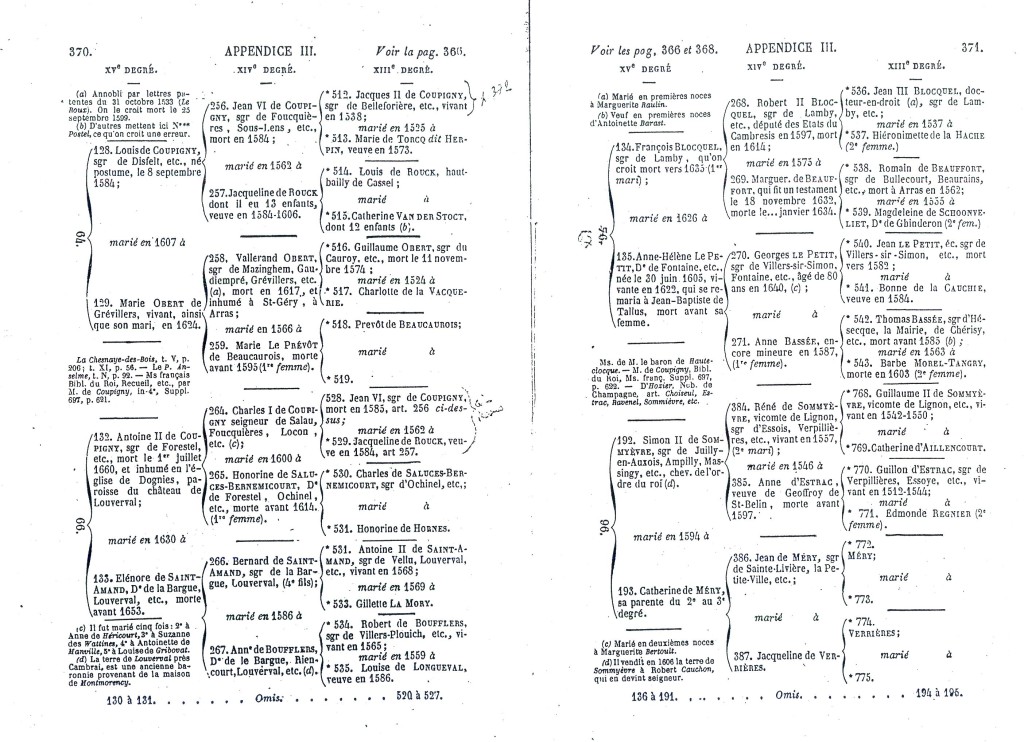 370. APPENDICE III. Voir la pag. 366.
XVe DEGRÉ. XIVe DEGRÉ. XIIIe DEGRÉ.
(a) Annobli par lettres pa-
tentes du 31 octobre 1533 (Le
Roux). On le croit mort le 25
septembre 1599.
(b) D'autres mettent ici N***
Postel, ce qu'on croit une erreur.
128. Louis de COUPIGNY,
sgr de Disfelt, etc., né
postume, le 8 septembre
1584;
64.
marié en 1607 à
129. Marie OBERT de
Grévillers, vivant, ainsi
que son mari, en 1624.
La Chesnaye-des-Bois, t. V, p.
206; t. XI, p. 56. — Le P. An-
selme, t. N, p. 92. — Ms français
Bibl. du Roi, Recueil, etc., par
M. de Coupigny, in-4°, Suppl.
697, p. 621.
132. Antoine II de COU-
PIGNY, sgr de Forestel,
etc., mort le 1er juillet
1660, et inhumé en l'é-
glise de Dognies, pa-
roisse du château de
Louverval;
66.
marié en 1630 à
133. Elénore de SAINT-
AMAND, De de la Bargue,
Louverval, etc., morte
avant 1653.
(c) Il fut marié cinq fois: 2° à
Anne de Héricourt, 3° à Suzanne
des Wattines, 4° à Antoinette de
Manville, 5° à Louise de Griboval.
(d) La terre de Louverval près
Cambrai, est une ancienne ba-
ronnie provenant de la maison
de Montmorency.
256. Jean VI de COUPI-
GNY, sgr de Foucquiè-
res, Sous-Lens, etc.,
mort en 1584;
marié en 1562 à
257. Jacqueline de ROUCK
dont il eu 13 enfans,
veuve en 1584-1606.
258. Vallerand OBERT,
sgr de Mazinghem, Gau-
diempré, Grévillers, etc.
(a), mort en 1617, et
inhumé à St-Géry, à
Arras;
marié en 1566 à
259. Marie LE PRÉVÔT
de Beaucarois, morte
avant 1595 (1re femme).
264. Charles I de COUPI-
GNY seigneur de Salau,
Foucquières, Locon,
etc. (c);
marié en 1600 à
265. Honorine de SALU-
CES-BERNEMICOURT, De
de Forestel, Ochinel,
etc., morte avant 1614.
(1re femme).
266. Bernard de SAINT-
AMAND, sgr de la Bar-
gue, Louverval, (4e fils);
marié en 1586 à
267. Anne de BOUFFLERS,
De de le Bargue, Rien-
court, Louverval, etc. (d).
*512. Jacques II de COUPIGNY,
sgr de Belleforière, etc., vivant
en 1538;
marié en 1525 à
*513. Marie de TONCQ dit HER-
PIN, veuve en 1573.
*514. Louis de ROUCK, haut-
bailly de Cassel;
marié à
*515. Catherine VAN DER STOCT,
dont 12 enfans (b).
*516. Guillaume OBERT, sgr du
Cauroy, etc., mort le 11 novem-
bre 1574;
marié en 1524 à
*517. Charlotte de la VACQUE-
RIE.
*518. Prevôt de BEAUCAUROIS;
marié à
*519.
528. Jean VI, sgr de COUPIGNY,
mort en 1585, art. 256 ci-des-
sus;
marié en 1562 à
*529. Jacqueline de ROUCK, veu-
ve en 1584, art 257.
*530. Charles de SALUCES-BER-
NEMICOURT, sgr d'Ochinel, etc.;
marié à
*531. Honorine de HORNES.
*531. Antoine II de SAINT-A-
MAND, sgr de Vellu, Louverval,
etc., vivant en 1568;
marié en 1569 à
*533. Gillette LA MORY.
*534. Robert de BOUFFLERS,
sgr de Villers-Plouich, etc., vi-
vant en 1565;
marié en 1559 à
*535. Louise de LONGUEVAL,
veuve en 1586.
130 à 131. . . . . . . Omis. . . . . . . . 520 à 527.
Voir les pag. 366 et 368. APPENDICE III. 371.
XVe DEGRÉ XIVe DEGRÉ. XIIIe DEGRÉ.
(a) Marié en premières noces
à Marguerite Raulin.
(b) Veuf en premières noces
d'Antoinette Barast.
134. François BLOCQUEL,
sgr de Lamby, qu'on
croit mort vers 1635 (1er
mari);
marié en 1626 à
135. Anne-Hélène LE PE-
TIT, De de Fontaine, etc.,
née le 30 juin 1605, vi-
vante en 1622, qui se re-
maria à Jean-Baptiste de
Tallus, mort avant sa
femme.
Ms. de M. le baron de Haute-
clocque. — M. de Coupigny, Bibl.
du Roi, Ms. franç. Suppl. 697,
p. 622. — D'Hozier, Nob. de
Champagne, art. Choiseul, Es-
trac, Ravenel, Sommièvre, etc.
192. Simon II de SOM-
MYÈVRE, sgr de Juilly-
en-Auxois, Ampilly, Mas-
singy, etc., chev. de l'or-
dre du roi (d).
96.
marié en 1594 à
193. Catherine de MÉRY,
sa parente du 2e au 3e
degré.
(c) Marié en deuxièmes noces
à Marguerite Bertoult.
(d) Il vendit en 1606 la terre de
Sommyèvre à Robert Cauchon,
qui en devint seigneur.
268. Robert II BLOC-
QUEL, sgr de Lamby,
etc., député des Etats du
Cambresis en 1597, mort
en 1614;
marié en 1575 à
269. Marguer. de BEAUF-
FORT, qui fit un testament
le 18 novembre 1632,
morte le... janvier 1634.
270. Georges LE PETIT,
sgr de Villers-sir-Simon,
Fontaine, etc., âgé de 80
ans en 1640, (c);
marié à
271. Anne BASSÉE, en-
core mineure en 1587,
(1re femme).
384. Réné de SOMMYÈ-
VRE, vicomte de Lignon,
sgr d'Essois, Verpilliè-
res, etc., vivant en 1557,
(2e mari);
marié en 1546 à
385. Anne d'ESTRAC,
veuve de Geoffroy de
St-Belin, morte avant
1597.
386. Jean de MÉRY, sgr
de Sainte-Livière, la Pe-
tite-Ville, etc.;
marié à
387. Jacqueline de VER-
RIÈRES.
*536. Jean III BLOCQUEL, doc-
teur-en-droit (a), sgr de Lam-
by, etc.;
marié en 1537 à
*537. Hiéronimette de la HACHE
(2e femme.)
*538. Romain de BEAUFFORT,
sgr de Bullecourt, Beaurains,
etc., mort à Arras en 1562;
marié en 1535 à
*539. Magdeleine de SCHOONVE-
LIET, De de Ghinderon (2e fem.)
*540. Jean LE PETIT, éc. sgr de
Villers-sir-Simon, etc., mort
vers 1582;
marié à
*541. Bonne de la CAUCHIE,
veuve en 1584.
*542. Thomas BASSÉE, sgr d'Hé-
secque, la Mairie, de Chérisy,
etc., mort avant 1585 (b);
marié en 1563 à
*543. Barbe MOREL-TANGRY,
morte en 1603 (2e femme).
*768. Guillaume II de SOMMYÈ-
VRE, vicomte de Lignon, etc., vi-
vant en 1542-1550;
marié à
*769. Catherine d'AILLENCOURT.
*770. Guillon d'ESTRAC, sgr de
Verpillières, Essoye, etc., vi-
vant en 1512-1544;
marié à
*771. Edmonde REGNIER (2e
femme).
*772.
MÉRY;
marié à
*773.
*774.
VERRIÈRES;
marié à
*775.
136 à 191. . . . . . . Omis. . . . . . . . 194 à 195.